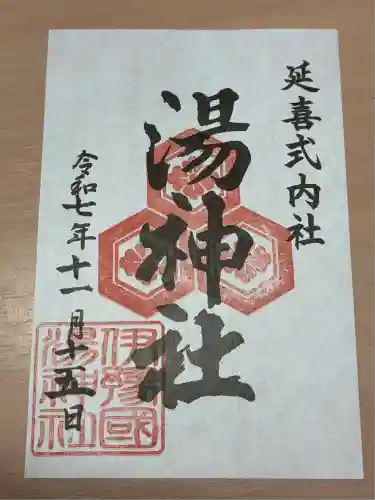 延喜式内社
湯神社
令和七年十一月十五日
伊豫國
湯神社